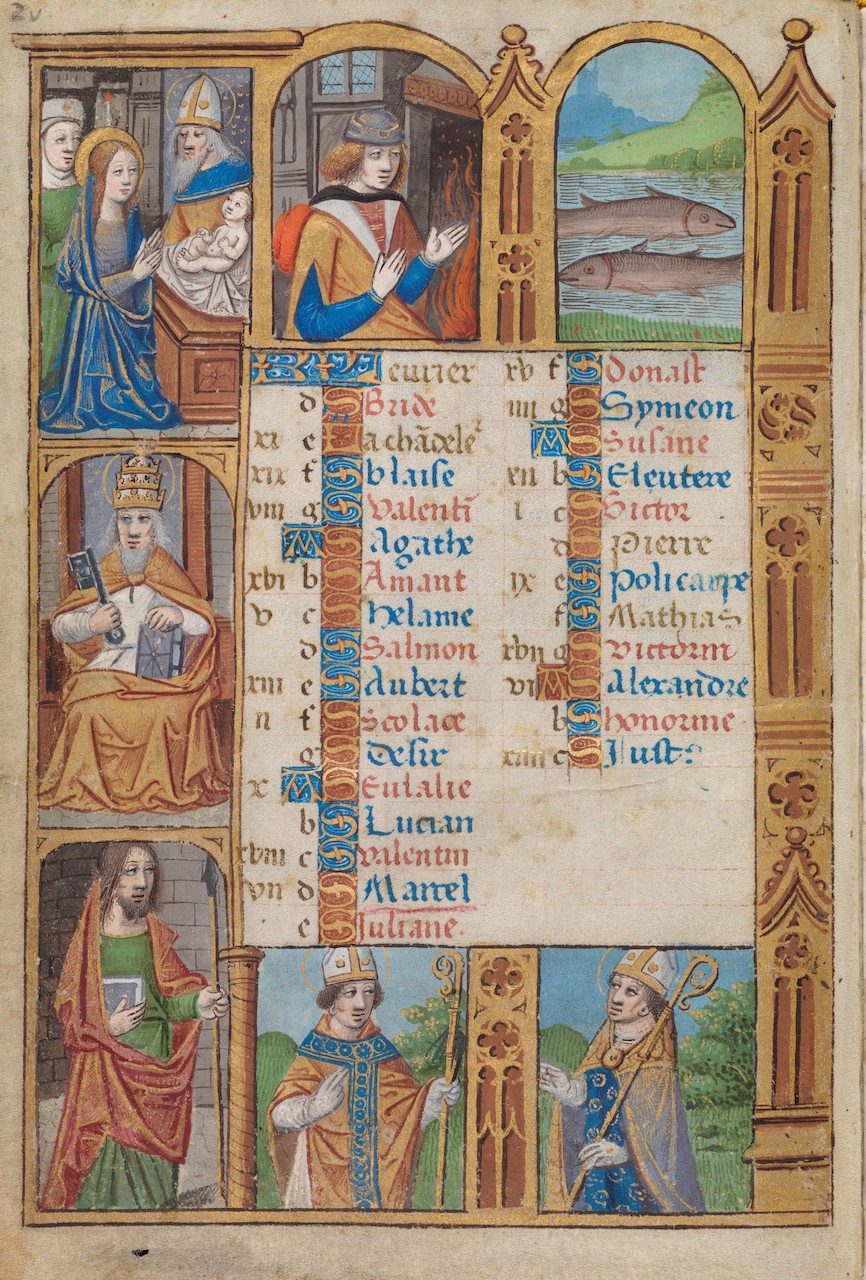 2v
KL feurier
d S Bride
xi e La chādele͛
xix f S blaise
viii g S Valentī
A S Agathe
xvi b S Amant
v c S helaine
d S Salmon
xiii e S Aubert
ii f S Scolace
g S Desir
x A S Eulalie
b S Lucian
xviii c S Valentin
vii d S Marcel
e S Juliane
xv f S Donast
iiii g S Symeon
A S Susane
xii b S Eleutere
i c S Victor
d S Pierre
ix e S Policarpe
f S Mathias
xvii g S Victorin
vi A S Alexandre
b S honorine
xiiii c S Just